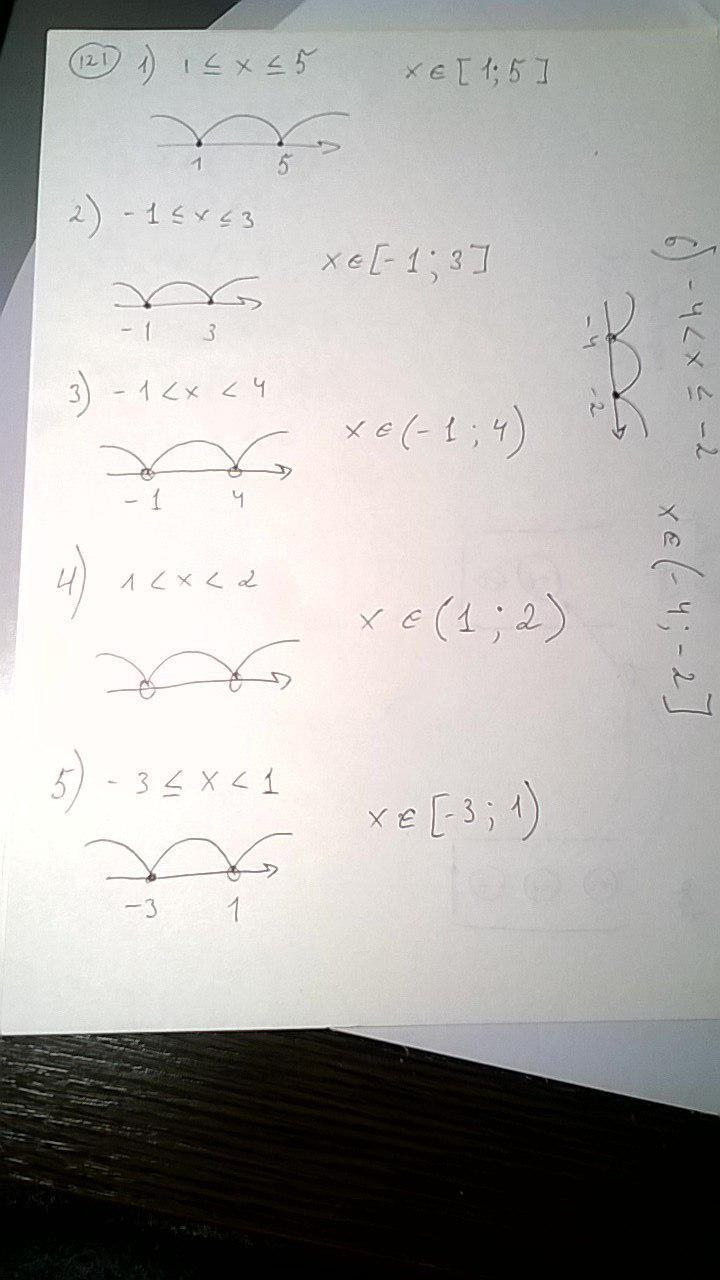 121 1) 1 ≤ x ≤ 5 x ∈ [1; 5]
1 5
2) -1 ≤ x ≤ 3
x ∈ [-1; 3]
-1 3
3) -1 < x < 4
x ∈ (-1; 4)
-1 4
4) 1 < x < 2
x ∈ (1; 2)
5) -3 ≤ x < 1
x ∈ [-3; 1)
-3 1
6) -4 < x ≤ -2 x ∈ (-4; -2]
-4 -2